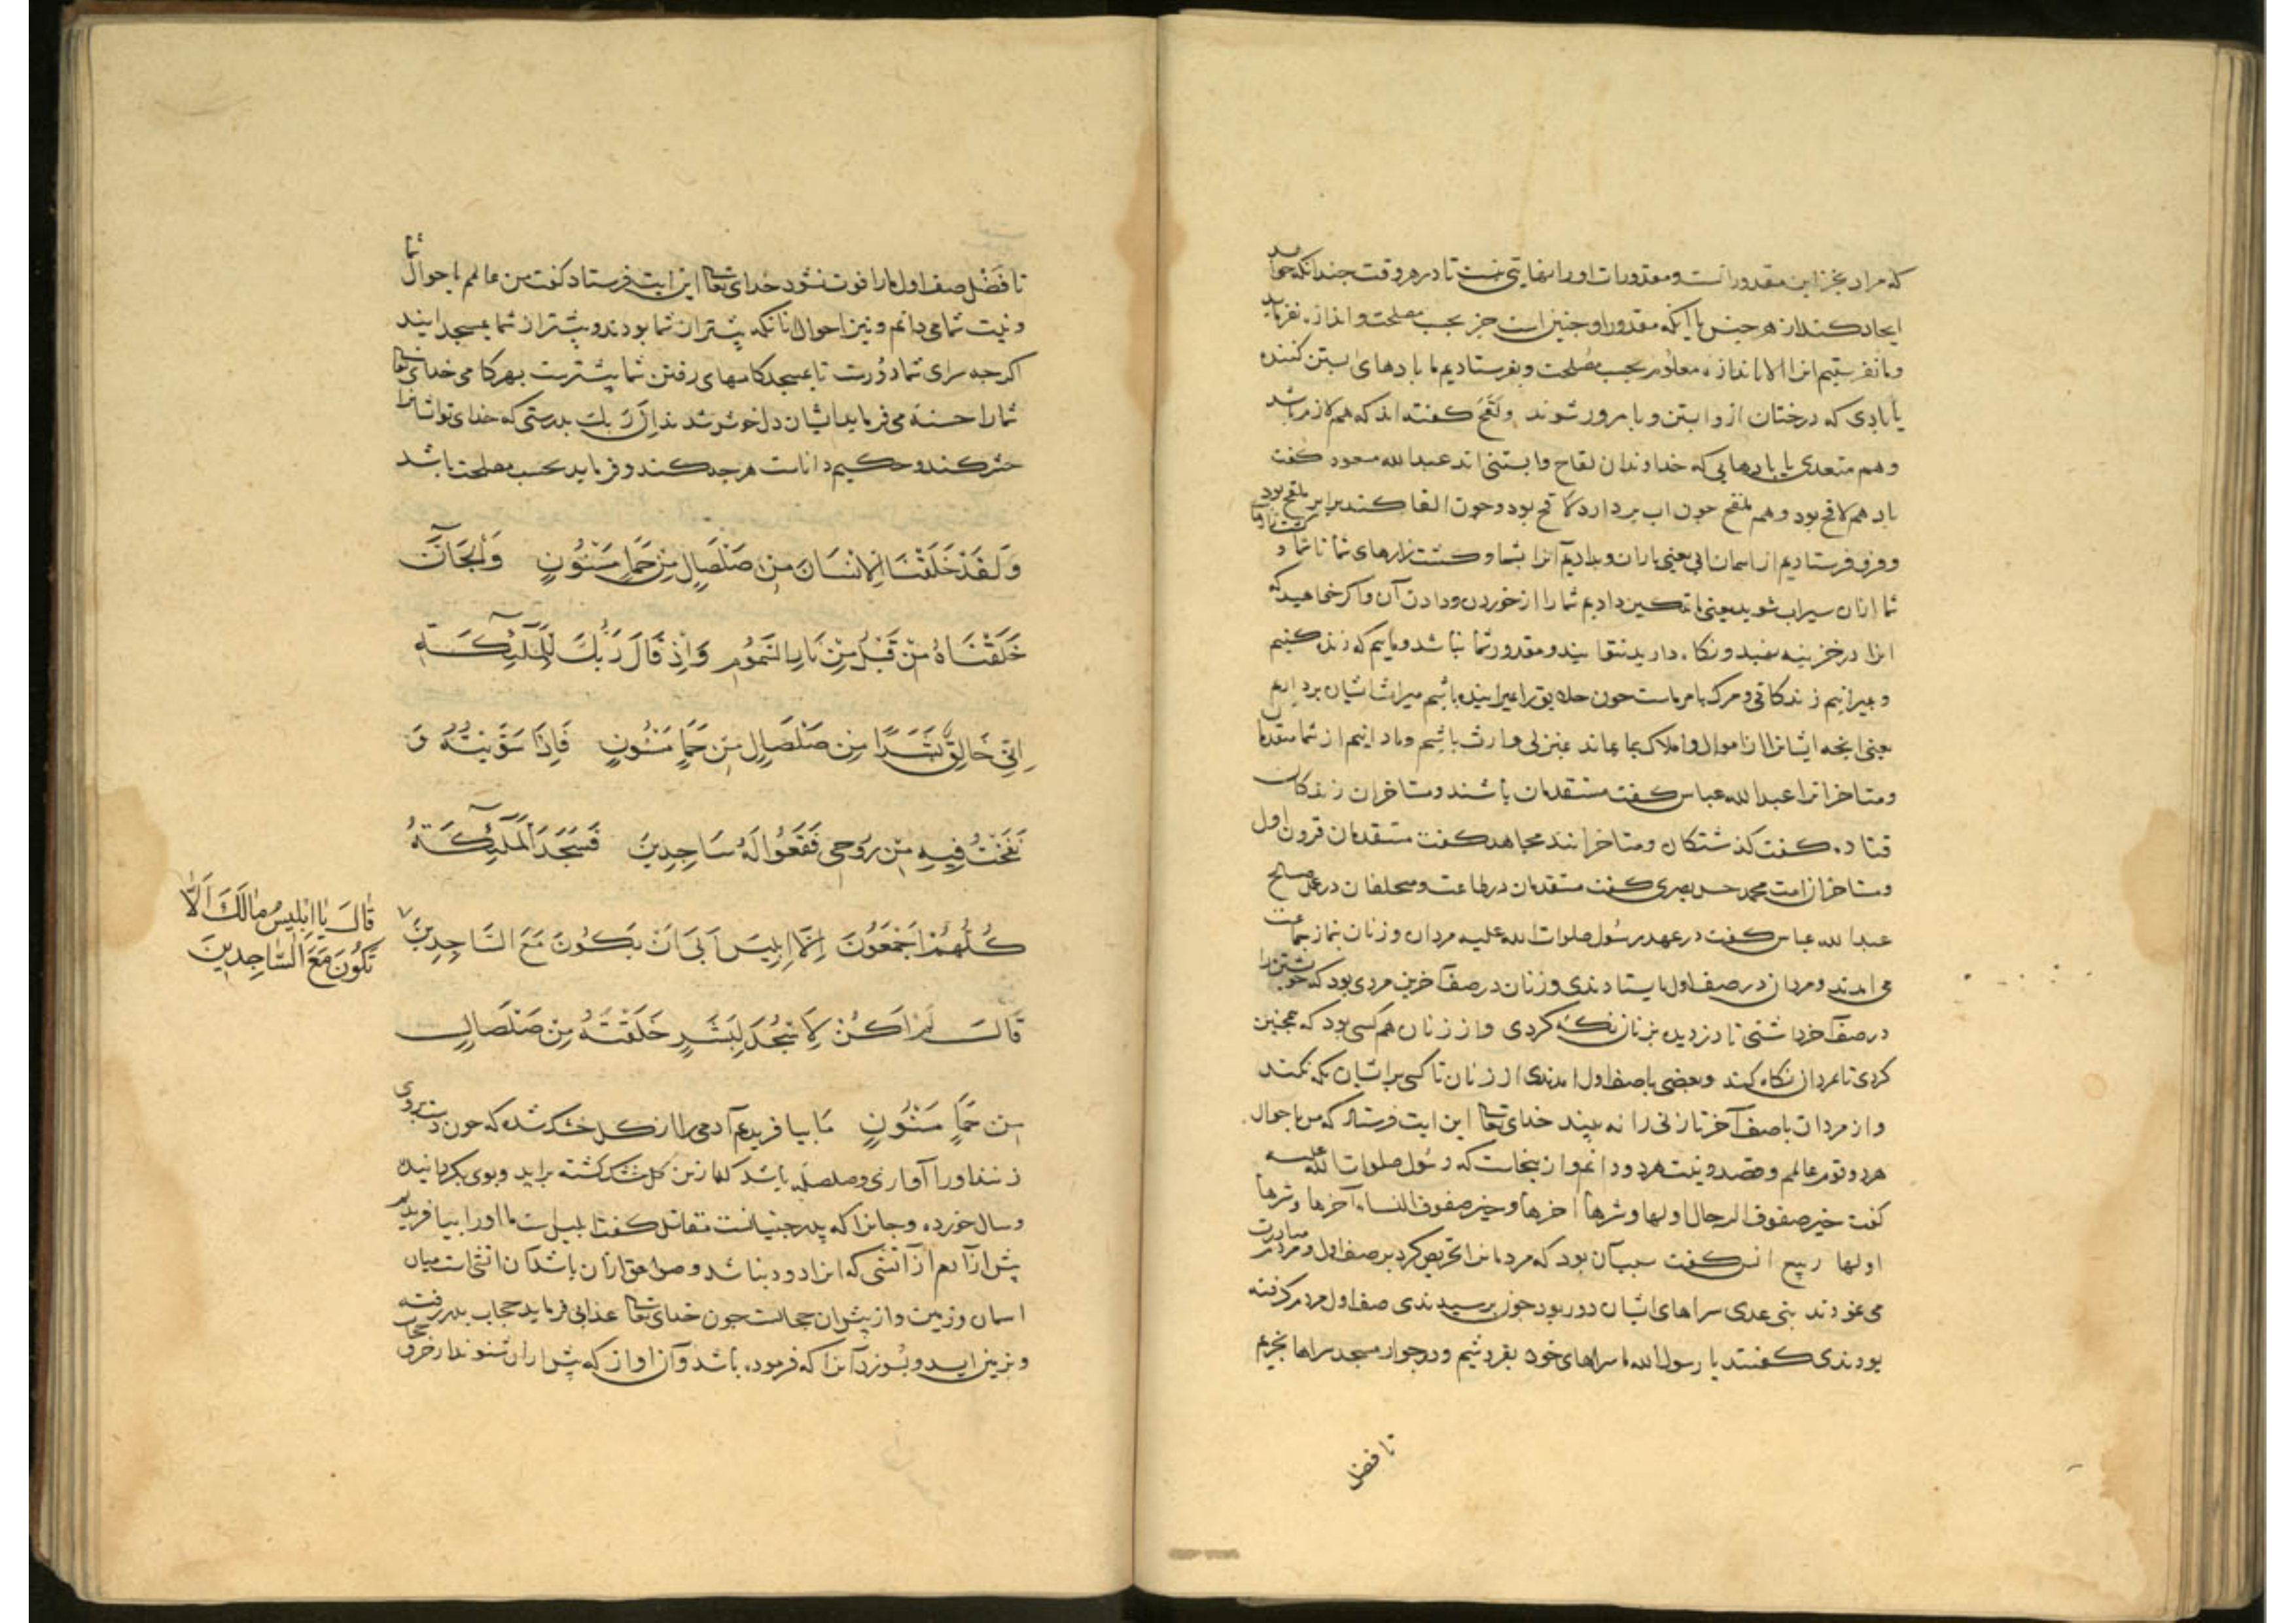 که مراد بجز این مقدور است و مقدورات او را نهایتی نیست تا در هر وقت چندانکه خواهد
ایجاد کند از هر جنس با آنکه مقدور او چنین است جز بحسب مصلحت و اندازه نفرماید
و ما نفرستیم انرا الا باندازه معلوم بحسب مصلحت و بفرستادیم ما بادهای ابستن کننده
یا بادی که درختان ازو ابستن و بارور شوند و لقح گفته اند که هم لازم باشد
و هم متعدی یا بادهایی که خداوندان لقاح و ابستنی اند عبدالله مسعود گفت
باد هم لاقح بود و هم ملقح چون اب بردارد لاقح بود و چون القا کند بر ابر ملقح بود
و فرو فرستادیم از اسمان ابی یعنی باران و بدادیم آنرا بشما و کشت زارهای شما تا شما و
شما ازان سیراب شوید یعنی ما تمکین دادیم شما را از خوردن و دادن آن و اگر خواهید که
انرا در خزینه بنهید و نگاه دارید نتوانید و مقدور شما نباشد و ماییم که زنده کنیم
و بمیرانیم زندگانی و مرگ بامر ماست چون خلایق را بمیرانیده باشیم میراث ایشان برداریم
یعنی انچه ایشانرا از اموال و املاک بماند بمنزلی وارث باشیم و ما دانیم از شما متقدمان
و متاخرانرا عبدالله عباس گفت مستقدمان باشند و مستاخران زندگان
قتاده گفت گذشتگان و متاخرانند مجاهد گفت مستقدمان قرون اول
و مستاخران امت محمد حسن بصری گفت مستقدمان در طاعت و متخلفان در عمل صالح
عبدالله عباس گفت در عهد رسول صلوات الله علیه مردان و زنان بنماز جماعت
می امدند و مردان در صف اول بایستادندی و زنان در صف آخرین مردی بود که خویشتن را
در صف آخر داشتی تا دزدیده بزنان نگه کردی و از زنان هم کسی بود که همچنین
کردی تا بمردان نگاه کند و بعضی با صف اول امدندی از زنان تا کسی برایشان نگه نکند
و از مردان با صف آخر تا زنی را نه بیند خدای تعالی این ایت فرستاد که من باحوال
هر دو قوم عالمم و قصد و نیت هر دو دانم و ازینجاست که رسول صلوات الله علیه
گفت خیر صفوف الرجال اولها و شرها آخرها و خیر صفوف النساء آخرها و شرها
اولها ربیع انس گفت سبب آن بود که مردمانرا تحریص کرد بر صف اول و مردم مبادرت
می نمودند بنی عدی سراهای ایشان دور بود چون برسیدندی صف اول مردم گرفته
بودندی گفتند یا رسول الله ما سراهای خود بفروشیم و در جوار مسجد سراها بخریم
تا فضل
تا فضل صف اول ما را فوت نشود خدای تعالی این ایت فرستاد گفت من عالمم باحوال شما
و نیت شما می دانم و نیز احوال انانکه پیشتر از شما بودند و پیشتر از شما بمسجد ایند
اگرچه سرای شما دورست تا بمسجد گامهای رفتن شما بیشترست بهر گامی خدای تعالی
شما را حسنه می فرماید ایشان دل خوش شدند ان ربک بدرستی که خدای تو ایشانرا
حشر کند و حکیم و داناست هرچه کند و فرماید بحسب مصلحت باشد
وَلَقَدْ خَلَقْنَا الْاِنْسَانَ مِنْ صَلْصَالٍ مِنْ حَمَإٍ مَسْنُونٍ وَالْجَانَّ
خَلَقْنَاهُ مِنْ قَبْلُ مِنْ نَارِ السَّمُومِ وَاِذْ قَالَ رَبُّكَ لِلْمَلٰٓئِكَةِ
اِنِّي خَالِقٌ بَشَرًا مِنْ صَلْصَالٍ مِنْ حَمَإٍ مَسْنُونٍ فَاِذَا سَوَّيْتُهُ وَ
نَفَخْتُ فِيهِ مِنْ رُوحِي فَقَعُوا لَهُ سَاجِدِينَ فَسَجَدَ الْمَلٰٓئِكَةُ
كُلُّهُمْ اَجْمَعُونَ اِلَّا اِبْلِيسَ اَبَى اَنْ يَكُونَ مَعَ السَّاجِدِينَ
قَالَ يَا اِبْلِيسُ مَالَكَ اَلَّا
تَكُونَ مَعَ السَّاجِدِينَ
قَالَ لَمْ اَكُنْ لِاَسْجُدَ لِبَشَرٍ خَلَقْتَهُ مِنْ صَلْصَالٍ
مِنْ حَمَإٍ مَسْنُونٍ ما بیافریدیم آدمی را از گل خشک شده که چون دست بروی
زنند او را آوازی و صلصله باشد کما زین گل خشک گشته براید و بوی بگردانیده
و سال خورده و جانرا که پدر جنیانست مقاتل گفت ابلیس است ما او را بیافریدیم
پیش از آدم از آتشی که انرا دود نباشد و صواعق ازان باشد و آن اتشی است میان
اسمان و زمین و از پیش ان حجابست چون خدای تعالی عذابی فرماید حجاب بدر رفته
و بزمین اید و بسوزد آنرا که فرموده باشد و آن اواز که پیش از ان شنوند از خرق حجاب